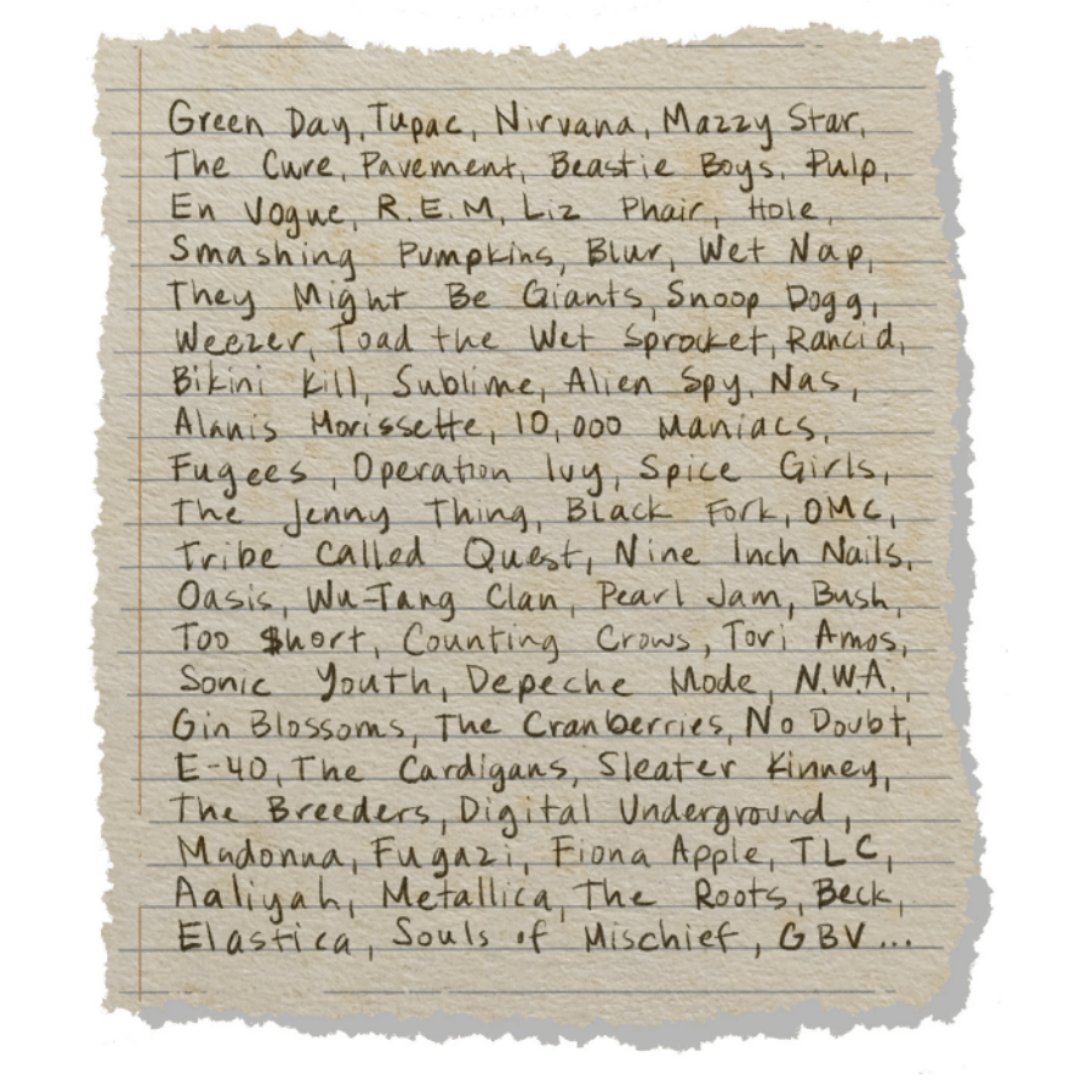 Green Day, Tupac, Nirvana, Mazzy Star,
The Cure, Pavement, Beastie Boys, Pulp,
En Vogue, R.E.M, Liz Phair, Hole,
Smashing Pumpkins, Blur, Wet Nap,
They Might Be Giants, Snoop Dogg,
Weezer, Toad the Wet Sprocket, Rancid,
Bikini Kill, Sublime, Alien Spy, Nas,
Alanis Morissette, 10,000 Maniacs,
Fugees, Operation Ivy, Spice Girls,
The Jenny Thing, Black Fork, OMC,
Tribe Called Quest, Nine Inch Nails,
Oasis, Wu-Tang Clan, Pearl Jam, Bush,
Too $hort, Counting Crows, Tori Amos,
Sonic Youth, Depeche Mode, N.W.A.,
Gin Blossoms, The Cranberries, No Doubt,
E-40, The Cardigans, Sleater Kinney,
The Breeders, Digital Underground,
Madonna, Fugazi, Fiona Apple, TLC,
Aaliyah, Metallica, The Roots, Beck,
Elastica, Souls of Mischief, GBV...